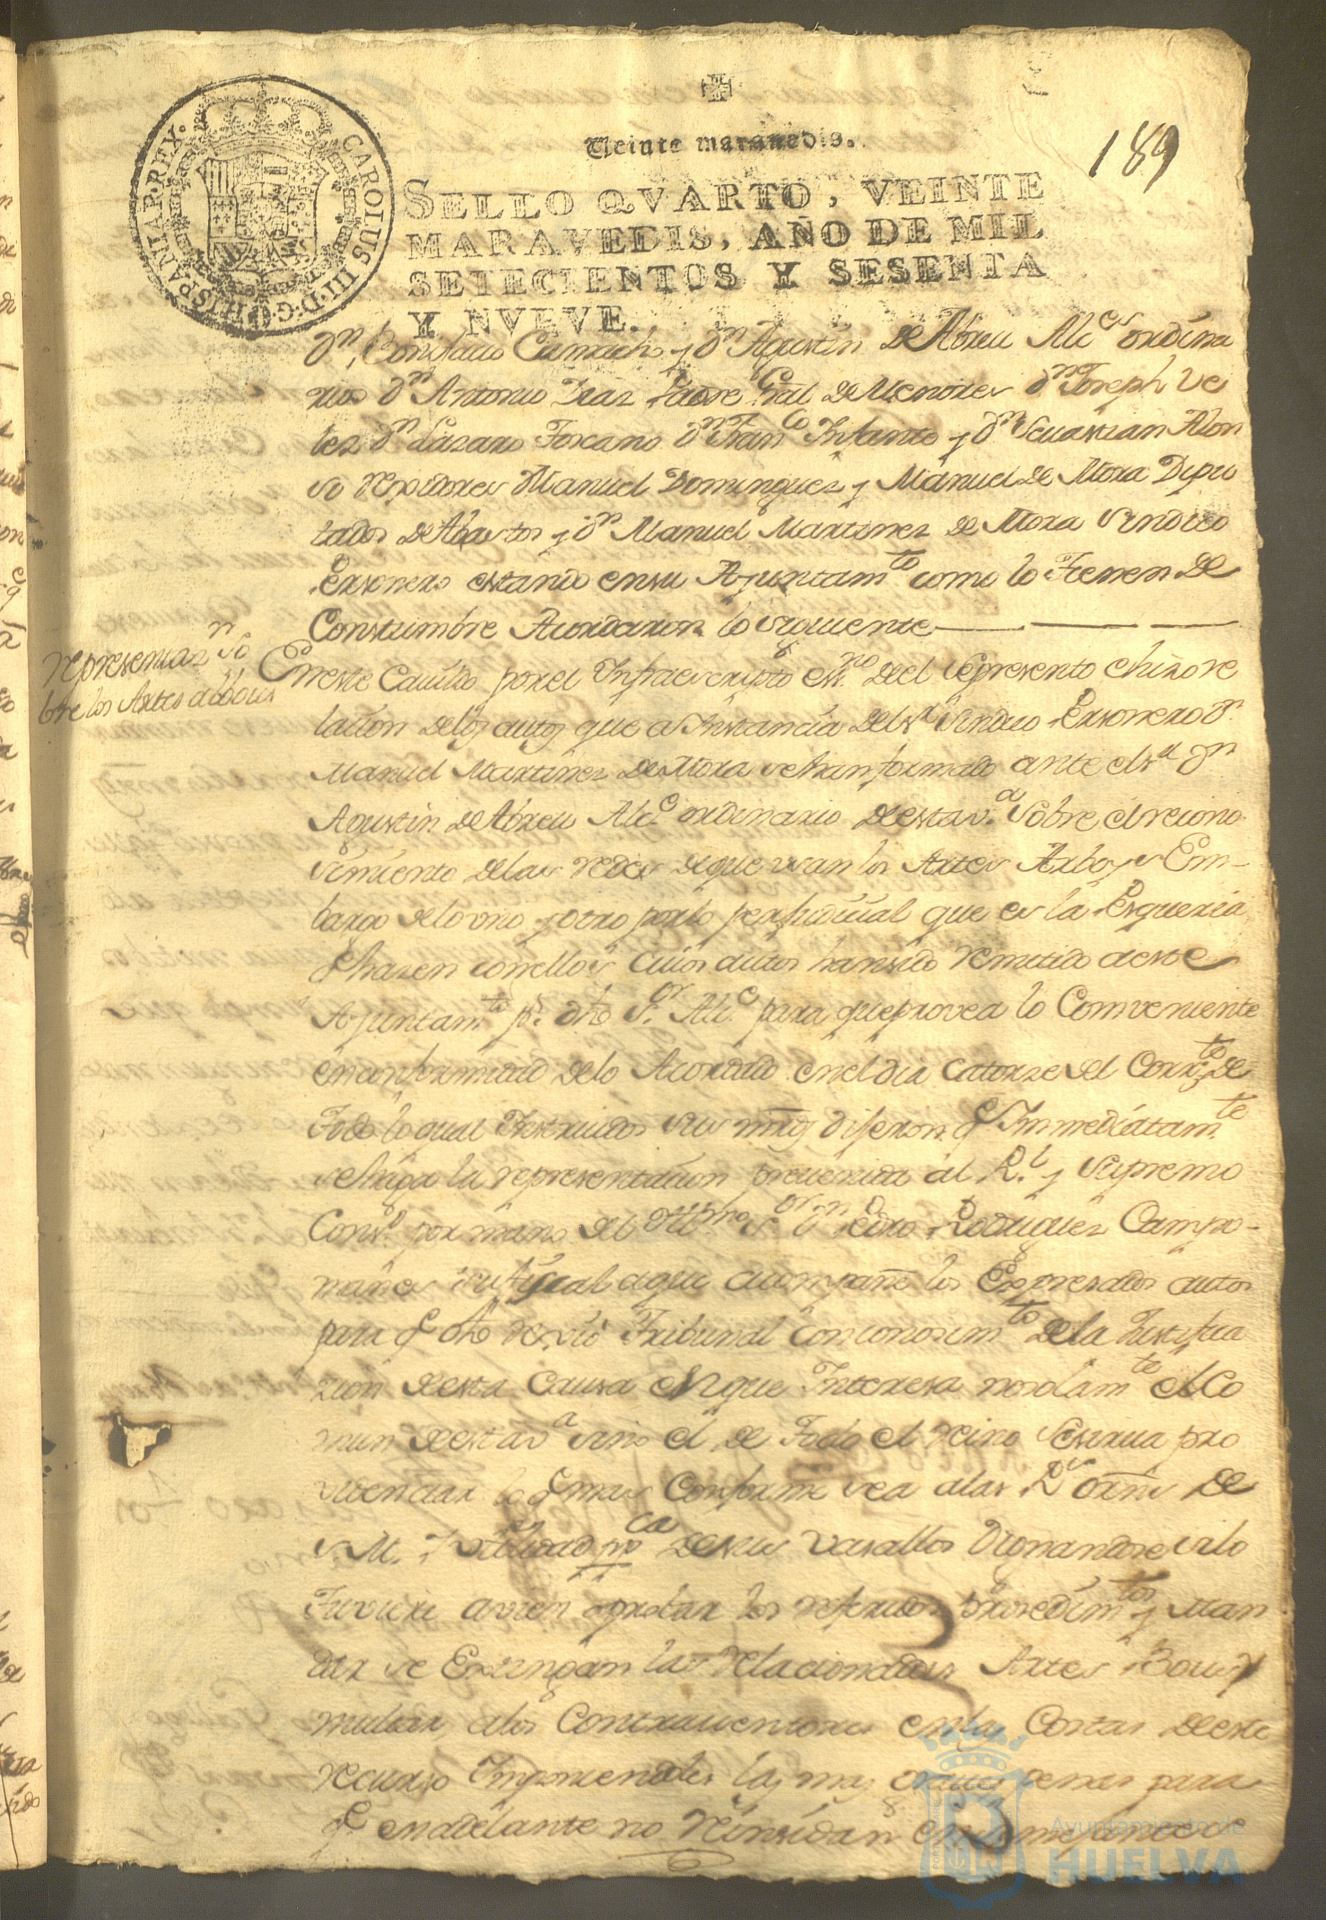 189
Veinte maravedis.
SELLO QVARTO, VEINTE
MARAVEDIS, AÑO DE MIL
SETECIENTOS Y SESENTA
Y NVEVE.
CAROLUS III D G HISPANIAR REX
Dn Camacho y Dn Agustin de Abreu Alces ordina
rios Dn Antonio Diaz Padre Gral de Menores Dn Joseph Ve
lez Dn Lazaro Toscano Dn Franco Infante y Dn Sevastian Alon
so Rexidores Manuel Dominguez y Manuel de Mora Dipu
tados de Abastos y Dn Manuel Martinez de Mora Sindico
Personero estando en su Ayuntamto como lo tienen de
Constumbre Acordaron lo siguiente
representazn so
bre los Artes de bous
En este Cavildo por el Infraescripto esno del se presento e hizo re
lacion de los autos que a Instancia del sr Sindico Personero Dn
Manuel Martinez de Mora se han formado ante el sr Dn
Agustin de Abreu Alce ordinario de esta va sobre el recono
simiento de las redes de que usan los Artes y Em
bargo de lo uno y otro por lo perjudicial que es la Pesqueria
q hazen con ellos cuios autos han sido remitido a este
Ayuntamto pr dho Sor Alce para que provea lo Comveniente
en conformidad de lo Acordado en el dia Catorze del Corrte de
Todo lo qual Instruidos sus mrzs dijeron q Immediatamte
se haga la representacion prevenida al Rl y Supremo
Consº por mano del Illmo Sor Dn Pedro Rodriguez Campo-
manes su fiscal a que acompañe los Expresados autos
para q dho Tribunal con conosimto de la Justifica
zion de esta Causa en que Interesa no solamte el Co
mun de esta va sino el de Todo el Reino se sirva pro
videnciar lo q mas Conforme sea a las Rs ornes de
S M. y utilidad pca de sus vasallos Dignandose si lo
Tuviere a vien aprobar los referidos prosedimtos y Man
dar se Extingan las relacionadas Artes Bous y
multar a los Contraventores en las Costas de este
recurso Imponiendoles las mas graves penas para
q en adelante no Reinsidan en semejante
Ayuntamiento de
HUELVA